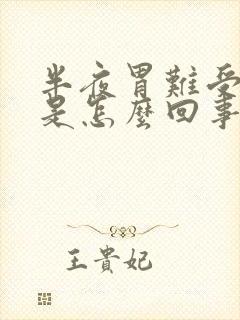 半夜胃難受
是怎麼回事
王貴妃